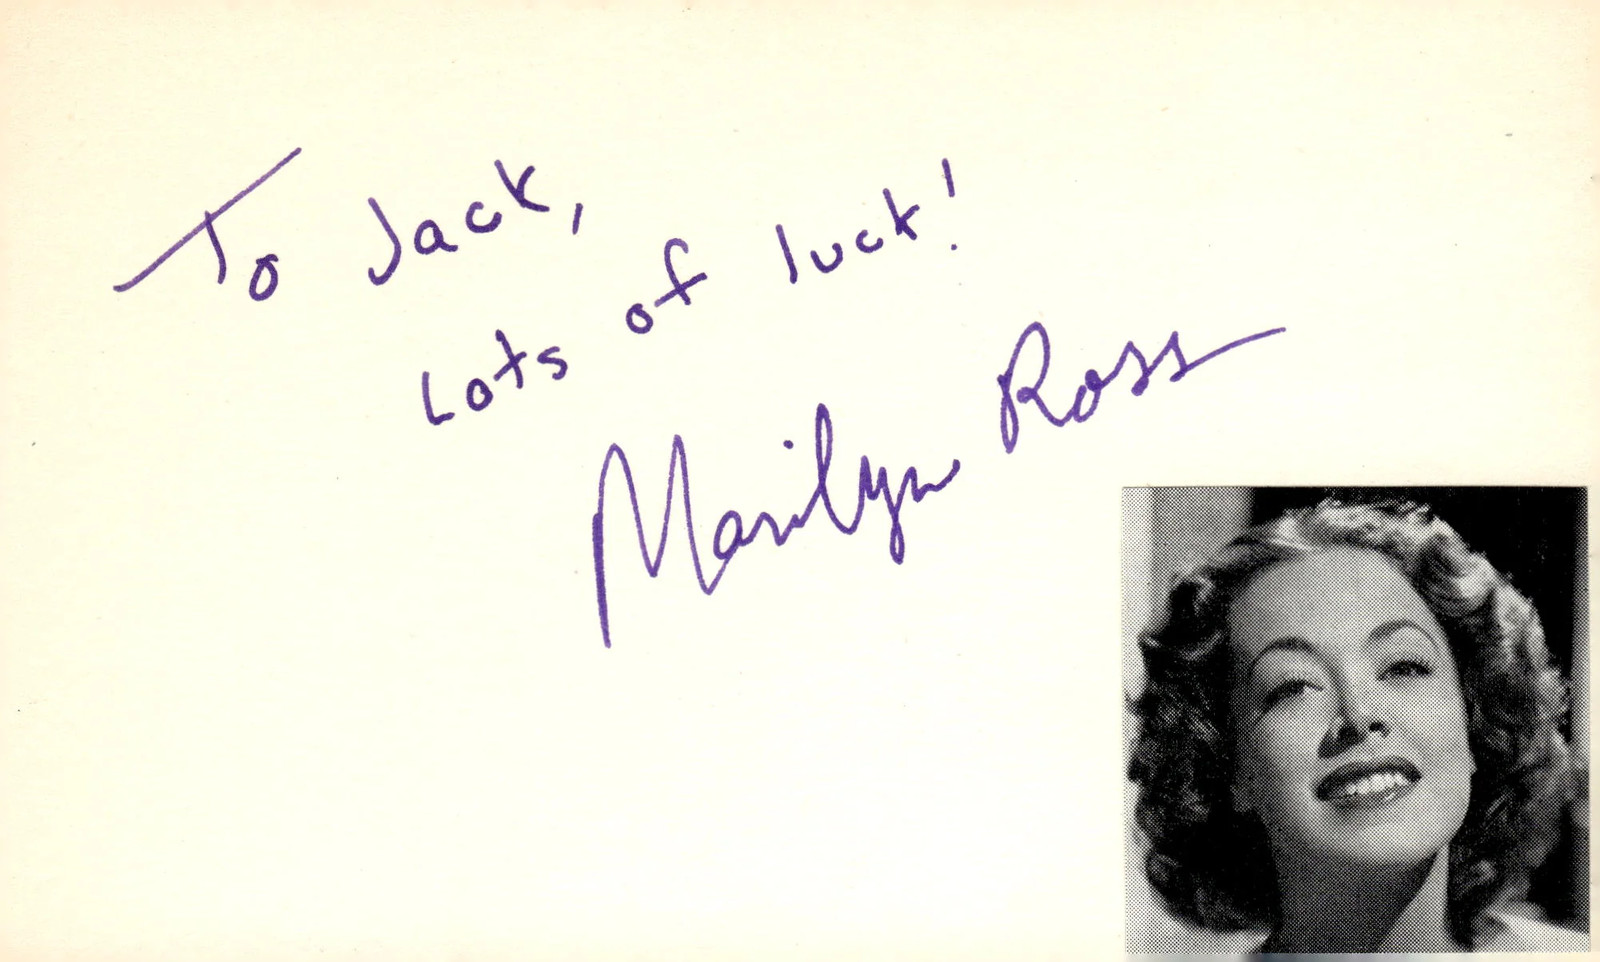 To Jack,
Lots of luck!
Marilyn Ross